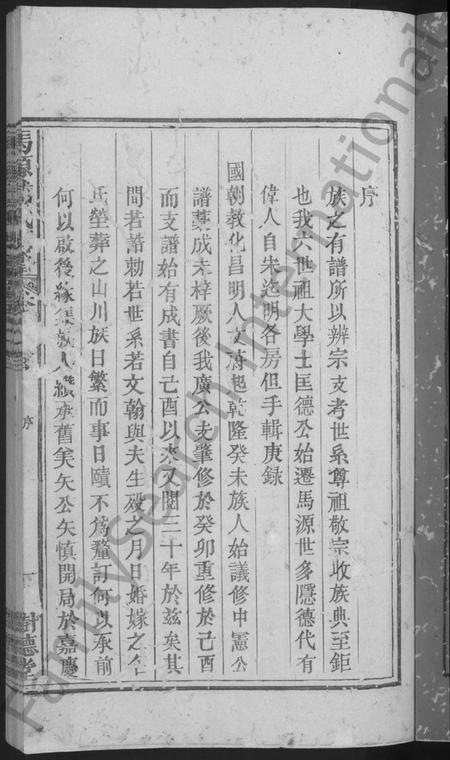 序
族之有譜所以辨宗支考世系尊祖敬宗收族典至鉅
也我六世祖大學士匡德公始遷馬源世多隱德代有
偉人自宋迄明各房但手輯庚録
國朝教化昌明人文蔚起乾隆癸未族人始議修中憲公
譜葉成未梓厥後我廣公支肇修於癸卯重修於己酉
而支譜始有成書自己酉以來又閱三十年於兹矣其
間若誥勅若世系若文翰與夫生殁之月日婚嫁之
氏塋葬之山川族日繁而事日賾不爲釐訂何以承前
何以啟後縁集族人纘承舊矣矢公矢慎開局於嘉慶
馬源
序
樹德堂
FamilySearch International